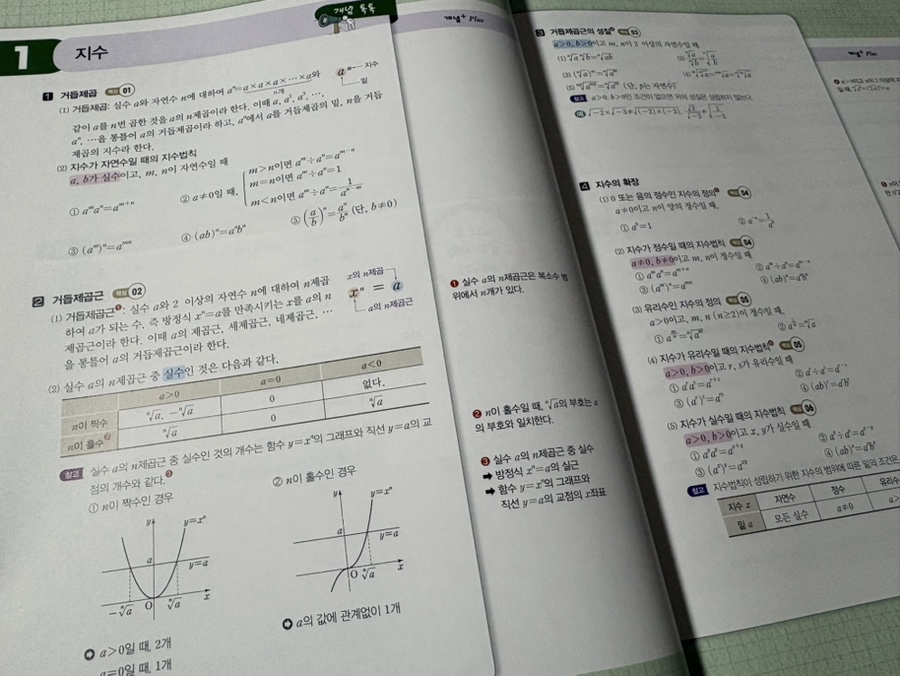 개념 톡톡
1 지수
1 거듭제곱 01
(1) 거듭제곱: 실수 a와 자연수 n에 대하여 aⁿ=a×a×a×⋯×a와
n개
같이 a를 n번 곱한 것을 a의 n제곱이라 한다. 이때 a, a², a³, ⋯,
aⁿ, ⋯을 통틀어 a의 거듭제곱이라 하고, aⁿ에서 a를 거듭제곱의 밑, n을 거듭
제곱의 지수라 한다.
aⁿ 지수
밑
(2) 지수가 자연수일 때의 지수법칙
a, b가 실수이고, m, n이 자연수일 때
① aᵐaⁿ=aᵐ⁺ⁿ
② a≠0일 때,
m>n이면 aᵐ÷aⁿ=aᵐ⁻ⁿ
m=n이면 aᵐ÷aⁿ=1
m<n이면 aᵐ÷aⁿ=1/aⁿ⁻ᵐ
③ (aᵐ)ⁿ=aᵐⁿ
④ (ab)ⁿ=aⁿbⁿ
⑤ (a/b)ⁿ=aⁿ/bⁿ (단, b≠0)
2 거듭제곱근 02
(1) 거듭제곱근❶: 실수 a와 2 이상의 자연수 n에 대하여 n제곱
하여 a가 되는 수, 즉 방정식 xⁿ=a를 만족시키는 x를 a의 n
제곱근이라 한다. 이때 a의 제곱근, 세제곱근, 네제곱근, ⋯
을 통틀어 a의 거듭제곱근이라 한다.
x의 n제곱
xⁿ = a
a의 n제곱근
(2) 실수 a의 n제곱근 중 실수인 것은 다음과 같다.
a>0 a=0 a<0
n이 짝수 ⁿ√a, -ⁿ√a 0 없다.
n이 홀수❷ ⁿ√a 0 ⁿ√a
참고 실수 a의 n제곱근 중 실수인 것의 개수는 함수 y=xⁿ의 그래프와 직선 y=a의 교
점의 개수와 같다.❸
① n이 짝수인 경우
y y=xⁿ
a y=a
-ⁿ√a O ⁿ√a x
➡ a>0일 때, 2개
a=0일 때, 1개
② n이 홀수인 경우
y y=xⁿ
a y=a
O ⁿ√a x
➡ a의 값에 관계없이 1개
개념⁺ Plus
❶ 실수 a의 n제곱근은 복소수 범
위에서 n개가 있다.
❷ n이 홀수일 때, ⁿ√a의 부호는 a
의 부호와 일치한다.
❸ 실수 a의 n제곱근 중 실수
➡ 방정식 xⁿ=a의 실근
➡ 함수 y=xⁿ의 그래프와
직선 y=a의 교점의 x좌표
3 거듭제곱근의 성질 03
a>0, b>0이고 m, n이 2 이상의 자연수일 때
(1) ⁿ√aⁿ√b=ⁿ√ab
(3) (ⁿ√a)ᵐ=ⁿ√aᵐ
4 지수의 확장
(1) 0 또는 음의 정수인 지수의 정의 04
a≠0이고 n이 양의 정수일 때,
① a⁰=1
② a⁻ⁿ=1/aⁿ
(2) 지수가 정수일 때의 지수법칙 04
a≠0, b≠0이고 m, n이 정수일 때
① aᵐaⁿ=aᵐ⁺ⁿ ② aᵐ÷aⁿ=aᵐ⁻ⁿ
③ (aᵐ)ⁿ=aᵐⁿ ④ (ab)ⁿ=aⁿbⁿ
(3) 유리수인 지수의 정의 05
a>0이고, m, n (n≥2)이 정수일 때
(4) 지수가 유리수일 때의 지수법칙 05
a>0, b>0이고 r, s가 유리수일 때
① aʳaˢ=aʳ⁺ˢ ② aʳ÷aˢ=aʳ⁻ˢ
③ (aʳ)ˢ=aʳˢ ④ (ab)ʳ=aʳbʳ
(5) 지수가 실수일 때의 지수법칙 06
a>0, b>0이고 x, y가 실수일 때
① aˣaʸ=aˣ⁺ʸ ② aˣ÷aʸ=aˣ⁻ʸ
③ (aˣ)ʸ=aˣʸ ④ (ab)ˣ=aˣbˣ
참고 지수법칙이 성립하기 위한 지수의 범위에 따른 밑의 조건은
지수 x 자연수 정수 유리수
밑 a 모든 실수 a≠0
개념⁺ Plus